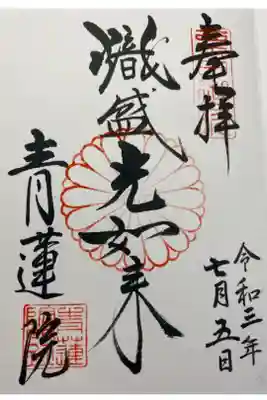 奉拝
熾盛光如来
青蓮院
令和三年
七月五日